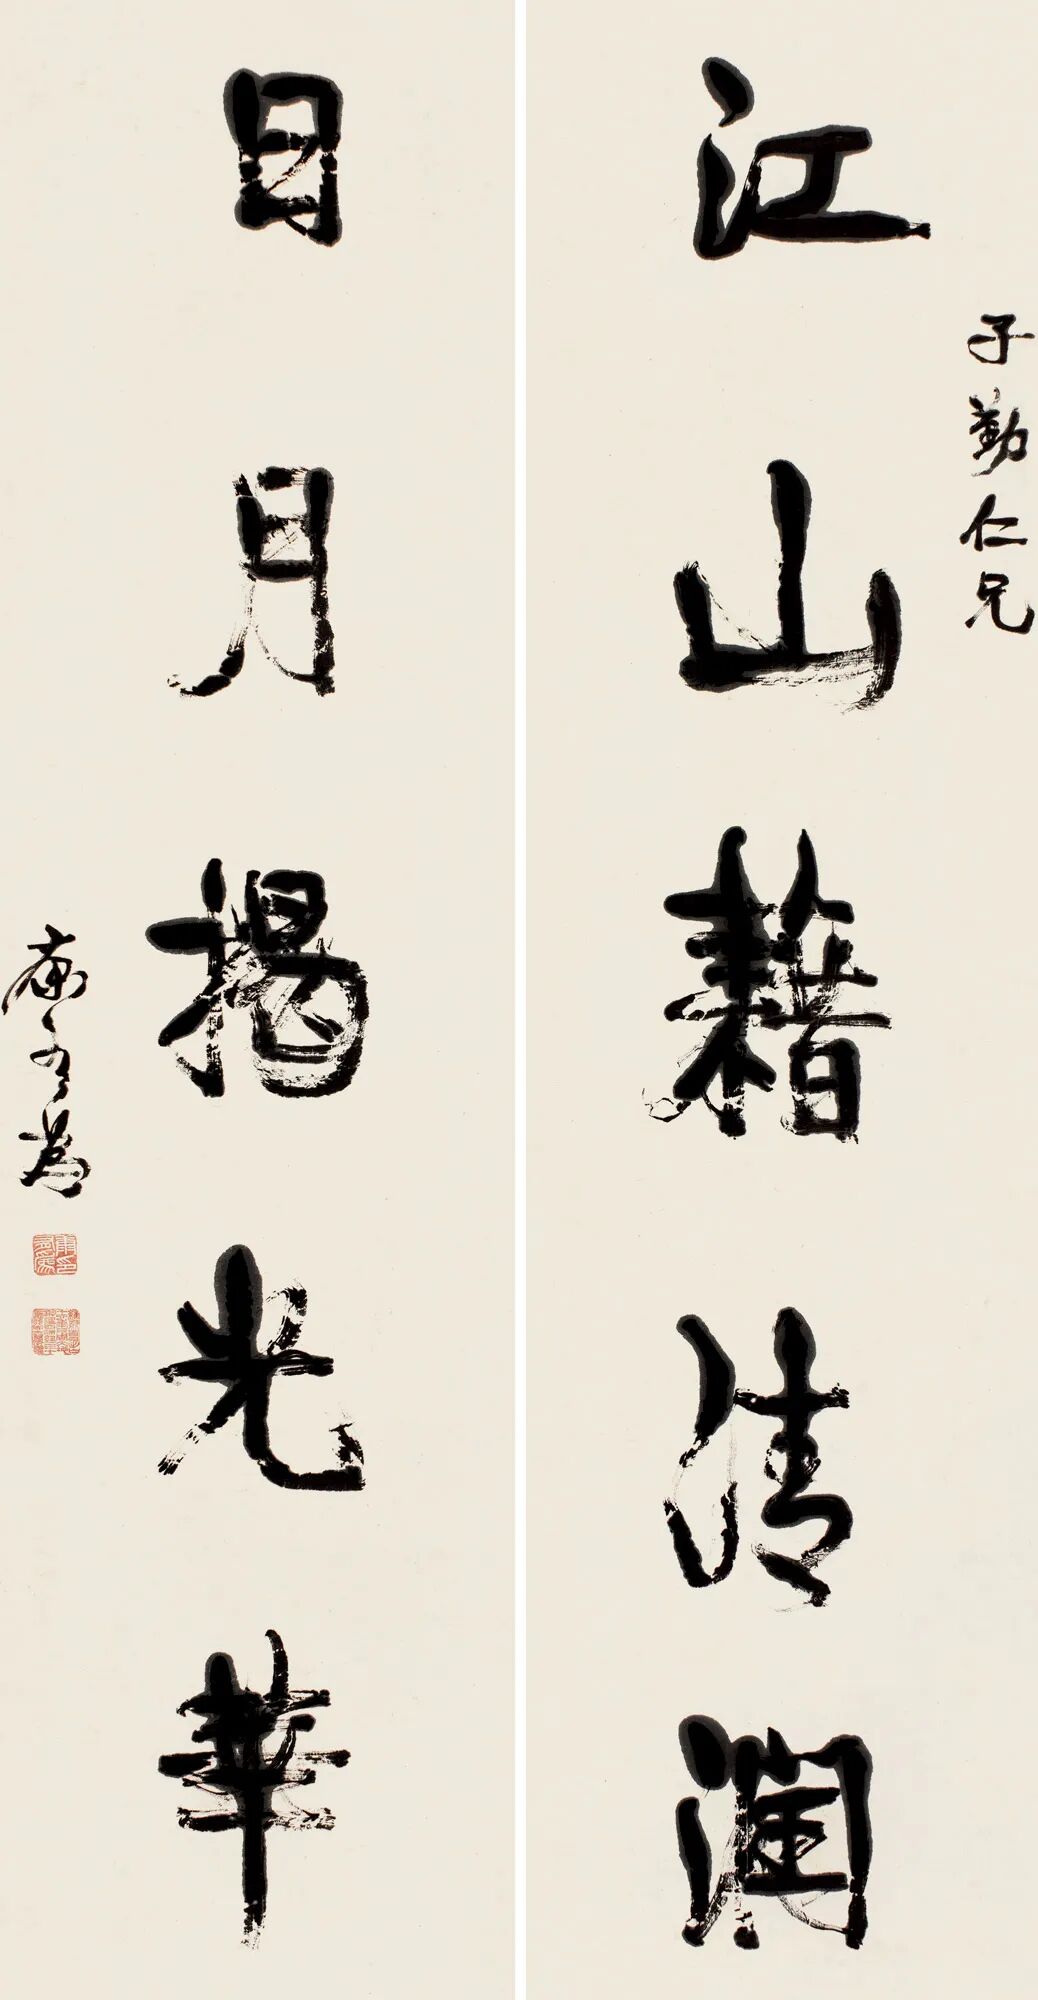 子勤仁兄
江山藉清润
日月揭光華
康有為